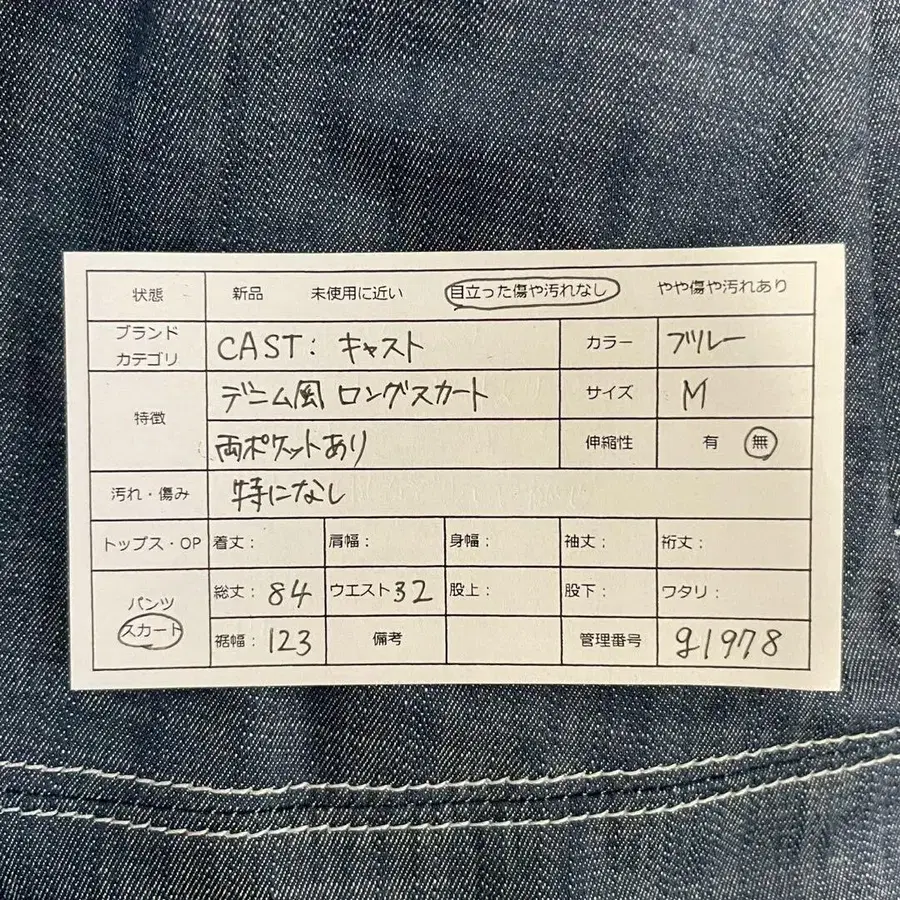 状態 新品 未使用に近い 目立った傷や汚れなし やや傷や汚れあり
ブランド
カテゴリ CAST: キャスト カラー ブルー
特徴 デニム風 ロングスカート サイズ M
両ポケットあり 伸縮性 有 無
汚れ・傷み 特になし
トップス・OP 着丈: 肩幅: 身幅: 袖丈: 裄丈:
パンツ 総丈: 84 ウエスト 32 股上: 股下: ワタリ:
スカート 裾幅: 123 備考 管理番号 g1978